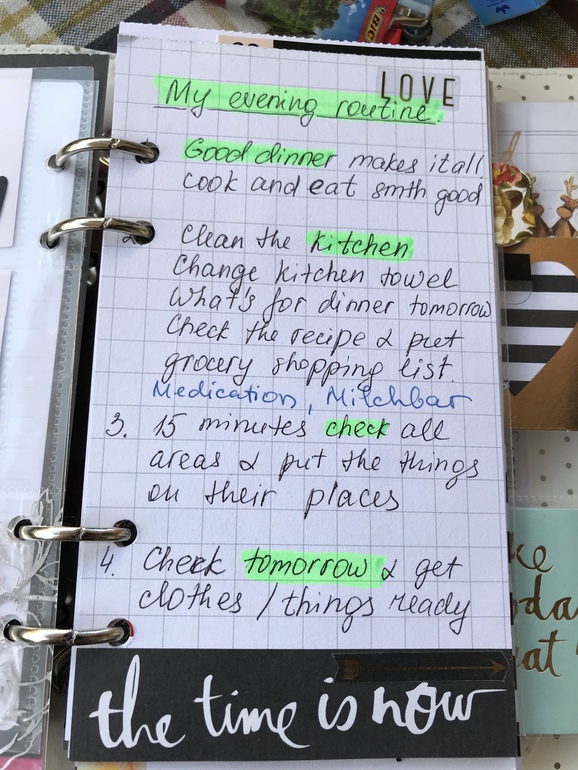 LOVE
My evening routine
Good dinner makes it all
cook and eat smth good
2. Clean the kitchen
Change kitchen towel
What's for dinner tomorrow
Check the recipe & put
grocery shopping list.
Medication, Milchbar
3. 15 minutes check all
areas & put the things
on their places
4. Check tomorrow & get
clothes / things ready
the time is now
BIC